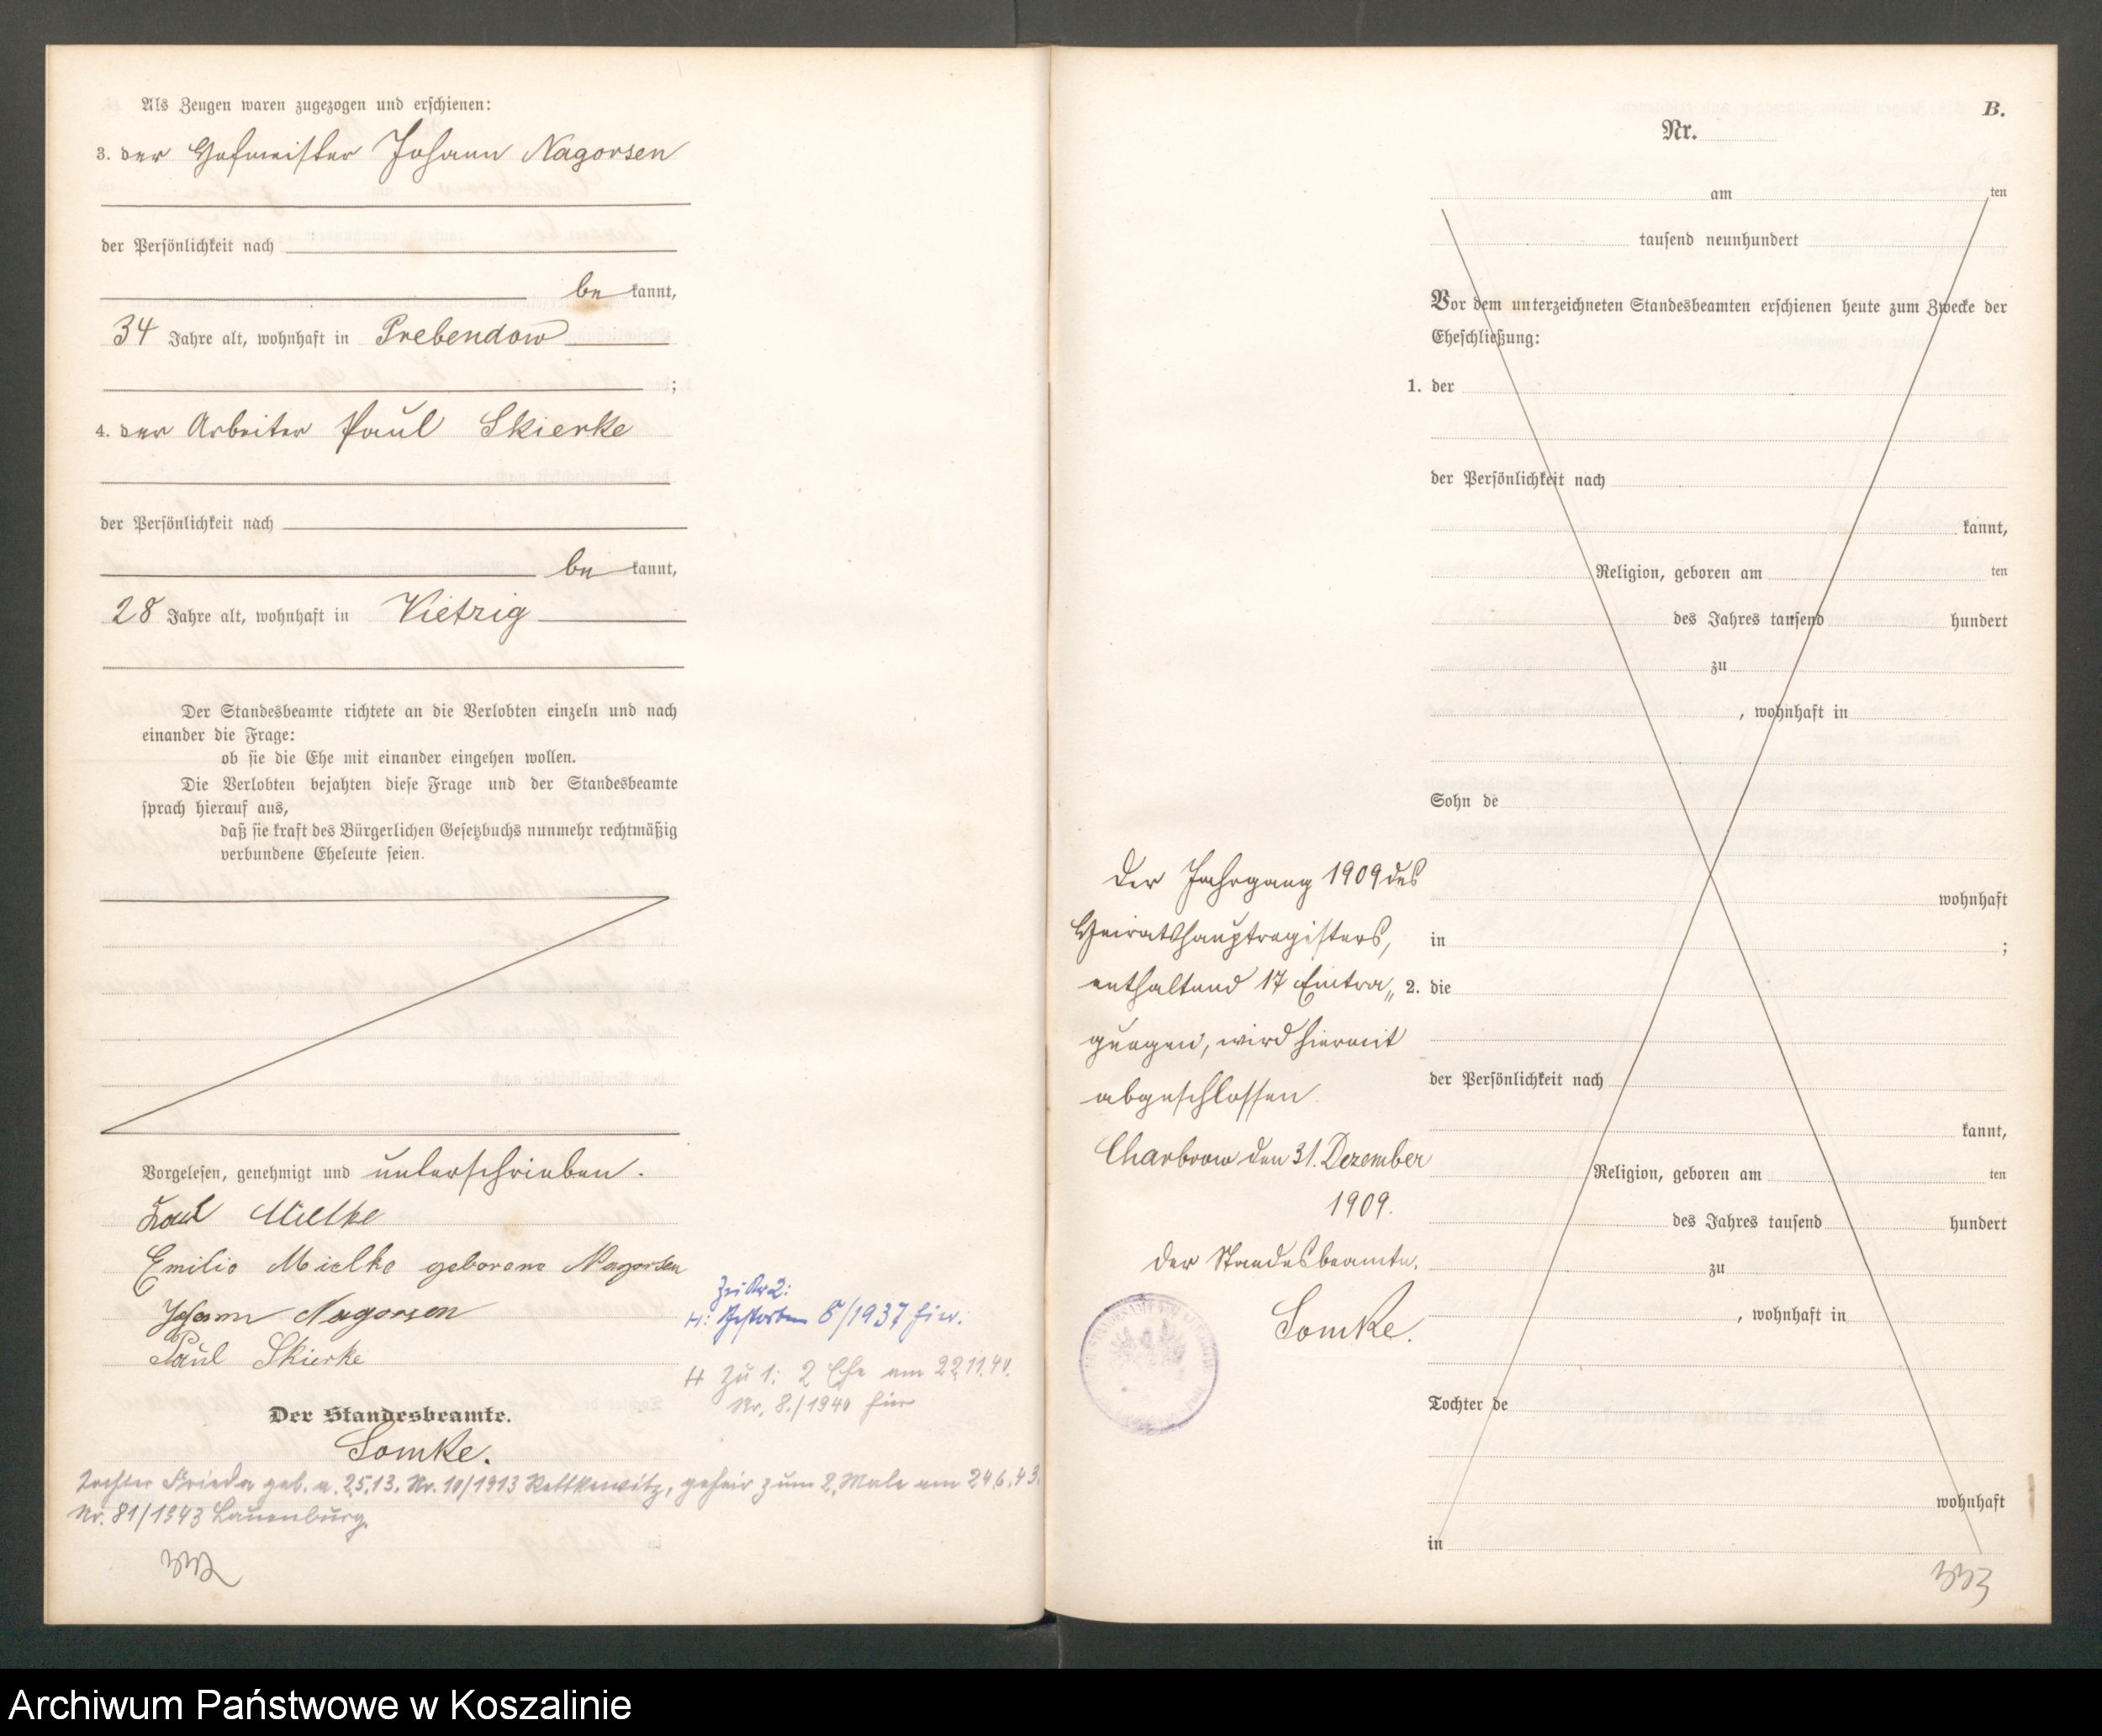 Als Zeugen waren zugezogen und erschienen:
3. der Hofmeister Johann Nagorsen
der Persönlichkeit nach
be kannt,
34 Jahre alt, wohnhaft in Prebendow
;
4. der Arbeiter Paul Skierke
der Persönlichkeit nach
be kannt,
28 Jahre alt, wohnhaft in Vietzig
Der Standesbeamte richtete an die Verlobten einzeln und nach
einander die Frage:
ob sie die Ehe mit einander eingehen wollen.
Die Verlobten bejahten diese Frage und der Standesbeamte
sprach hierauf aus,
daß sie kraft des Bürgerlichen Gesetzbuchs nunmehr rechtmäßig
verbundene Eheleute seien.
Vorgelesen, genehmigt und unterschrieben.
Mielke
Emilie Mielke geborene Nagorsen
Johann Nagorsen
Paul Skierke
Der Standesbeamte.
Lomke.
Zu Nr 2:
H: Gestorben 8/1937 hier.
H Zu 1: 2 Ehe am 22.11.40.
Nr. 8./1940 hier
Tochter Frieda geb. a. 2.5.13. Nr. 10/1913 Rettkewitz, geheir zum 2. Male am 24.6.43.
Nr. 81/1943 Lauenburg.
332
B.
Nr.
am ten
tausend neunhundert
Vor dem unterzeichneten Standesbeamten erschienen heute zum Zwecke der
Eheschließung:
1. der
der Persönlichkeit nach
kannt,
Religion, geboren am ten
des Jahres tausend hundert
zu
, wohnhaft in
Sohn de
wohnhaft
in ;
2. die
der Persönlichkeit nach
kannt,
Religion, geboren am ten
des Jahres tausend hundert
zu
, wohnhaft in
Tochter de
wohnhaft
in
Der Jahrgang 1909 des
Heiratshauptregisters,
enthaltend 17 Eintra„
gungen, wird hiermit
abgeschlossen.
Charbrow den 31. Dezember
1909.
Der Standesbeamte.
Lomke.
333
Archiwum Państwowe w Koszalinie